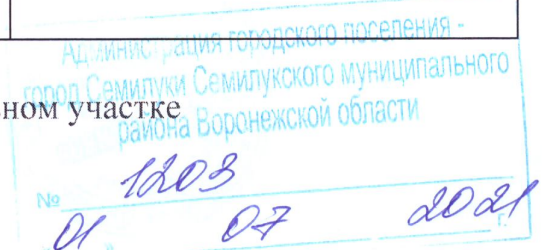 Администрация городского поселения -
город Семилуки Семилукского муниципального
ном участке
района Воронежской области
№ 1203
01 07 2021 г.